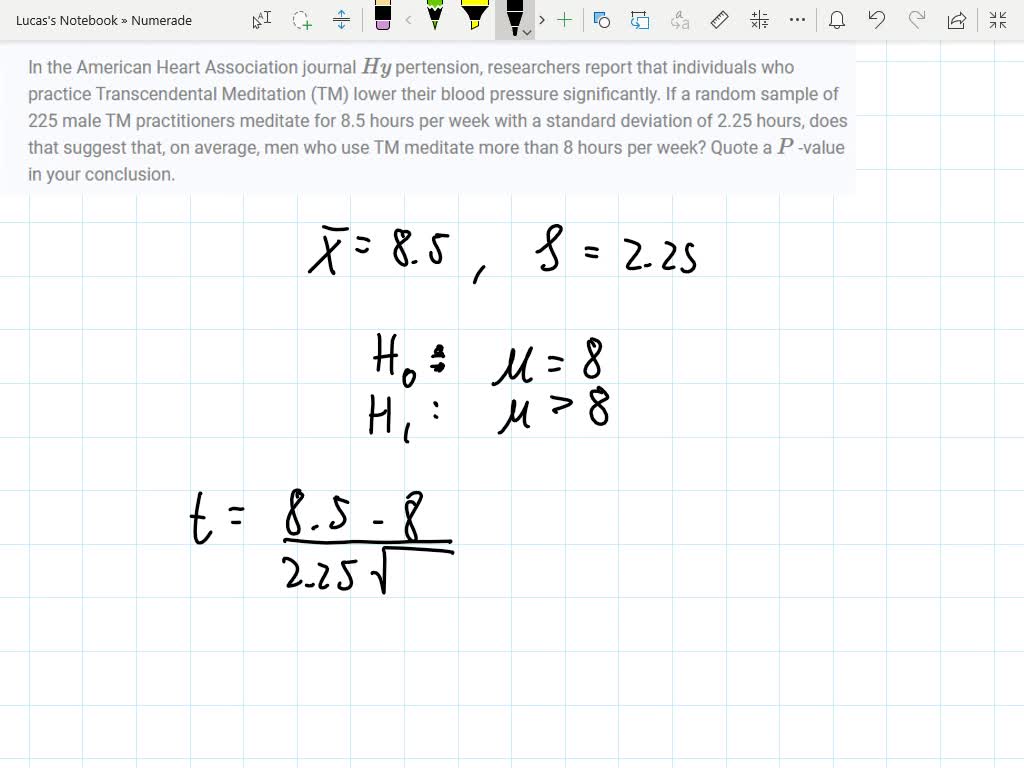 Lucas's Notebook » Numerade
In the American Heart Association journal Hy pertension, researchers report that individuals who
practice Transcendental Meditation (TM) lower their blood pressure significantly. If a random sample of
225 male TM practitioners meditate for 8.5 hours per week with a standard deviation of 2.25 hours, does
that suggest that, on average, men who use TM meditate more than 8 hours per week? Quote a P -value
in your conclusion.
x̄ = 8.5 , S = 2.25
H₀ : μ = 8
H₁ : μ > 8
t = 8.5 - 8
2.25 √